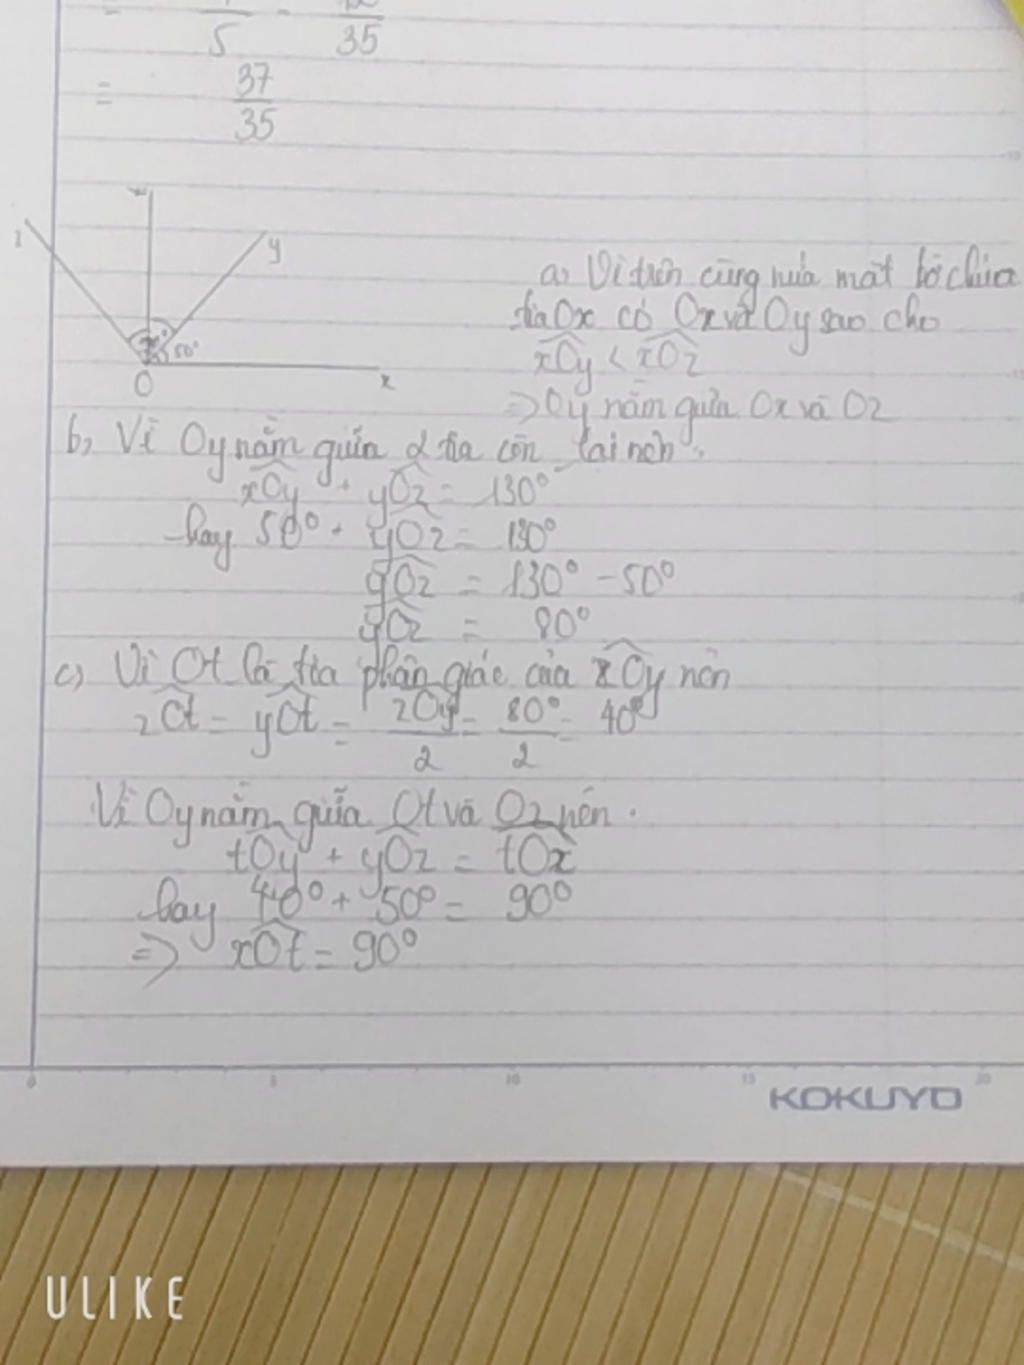 =
5
35
= 37/35
z
y
50°
O
x
a, Vì trên cùng nửa mặt bờ chứa
tia Ox có Ox và Oy sao cho
xOy < xOz
=> Oy nằm giữa Ox và Oz
b, Vì Oy nằm giữa 2 tia còn lại nên
xOy + yOz = 130°
hay 50° + yOz = 130°
yOz = 130° - 50°
yOz = 80°
c, Vì Ot là tia phân giác của zOy nên
zOt = yOt = zOy/2 = 80°/2 = 40°
Vì Oy nằm giữa Ot và Oz nên
tOy + yOz = tOx
hay 40° + 50° = 90°
=> xOt = 90°
0 5 10 15 20
KOKUYO
ULIKE